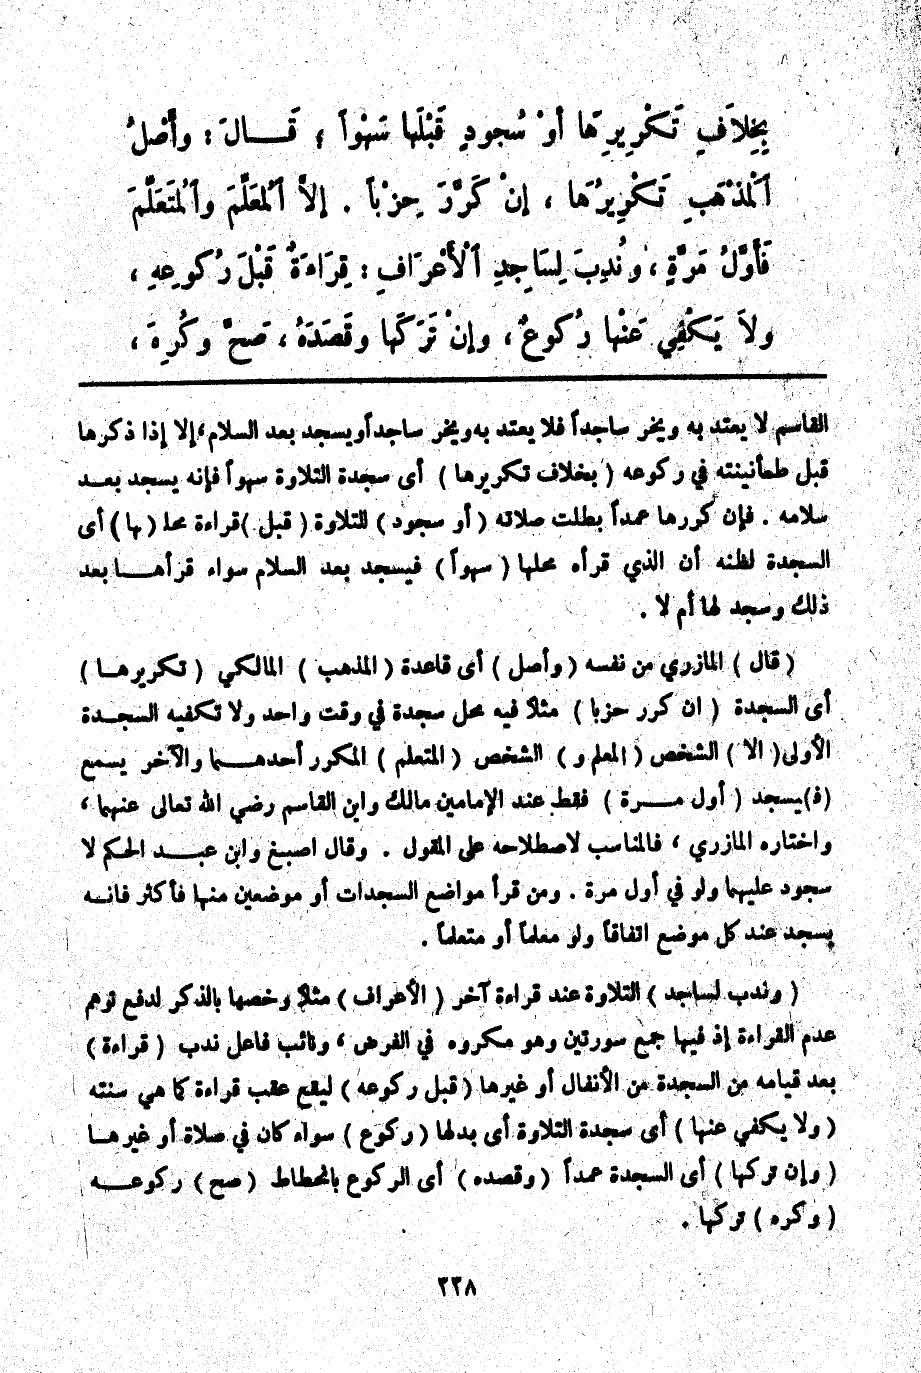 بِخِلَافِ تَكْرِيرِهَا أَوْ سُجُودٍ قَبْلَهَا سَهْواً ، قَـــالَ : وأَصْلُ
اَلْمَذْهَبِ تَكْرِيرُهَا ، إِنْ كَرَّرَ حِزْباً . إِلاَّ اَلْمُعَلِّمَ واَلْمُتَعَلِّمَ
فَأَوَّلُ مَرَّةٍ ، وَنُدِبَ لِسَاجِدِ اَلْأَعْرَافِ : قِرَاءَةٌ قَبْلَ رُكُوعِهِ ،
ولاَ يَكْفِي عَنْهَا رُكُوعٌ ، وإِنْ تَرَكَهَا وقَصَدَهُ ، صَحَّ وكُرِهَ ،
القاسم لا يعتد به ويخر ساجداً فلا يعتد به ويخر ساجداً ويسجد بعد السلام ، إلا إذا ذكرها
قبل طمأنينته في ركوعه ( بخلاف تكريرها ) أى سجدة التلاوة سهواً فإنه يسجد بعــد
سلامه . فإن كررها عمداً بطلت صلاته ( أو سجود ) للتلاوة ( قبل ) قراءة محلـ ( ها ) أى
السجدة لظنه أن الذي قرأه محلها ( سهواً ) فيسجد بعد السلام سواء قرأهـــا بعد
ذلك وسجد لها أم لا .
( قال ) المازري من نفسه ( وأصل ) أى قاعدة ( المذهب ) المالكي ( تكريرهــا )
أى السجدة ( ان كرر حزبا ) مثلاً فيه محل سجدة في وقت واحد ولا تكفيه السجـدة
الأولى ( الا ) الشخص ( المعلم و ) الشخص ( المتعلم ) المكرر أحدهـــما والآخر يسمع
( فـ ) يسجد ( أول مـــرة ) فقط عند الإمامين مالك وابن القاسم رضي الله تعالى عنهما ،
واختاره المازري ، فالمناسب لاصطلاحه على المقول . وقال اصبـغ وابن عبـــد الحكم لا
سجود عليهما ولو في أول مرة . ومن قرأ مواضع السجدات أو موضعين منها فأكثر فانــه
يسجد عند كل موضع اتفاقاً ولو معلماً أو متعلماً .
( وندب لساجد ) التلاوة عند قراءة آخر ( الأعراف ) مثلاً وخصها بالذكر لدفع توهم
عدم القراءة إذ فيها جمع سورتين وهو مكروه في الفرض ، ونائب فاعل ندب ( قراءة )
بعد قيامه من السجدة من الأنفال أو غيرها ( قبل ركوعه ) ليقع عقب قراءة كما هي سنته
( ولا يكفي عنها ) أى سجدة التلاوة أى بدلها ( ركوع ) سواء كان في صلاة أو غيرهــا
( وإن تركها ) أى السجدة عمداً ( وقصده ) أى الركوع بانحطاط ( صح ) ركوعـــه
( وكره ) تركها .
٢٢٨